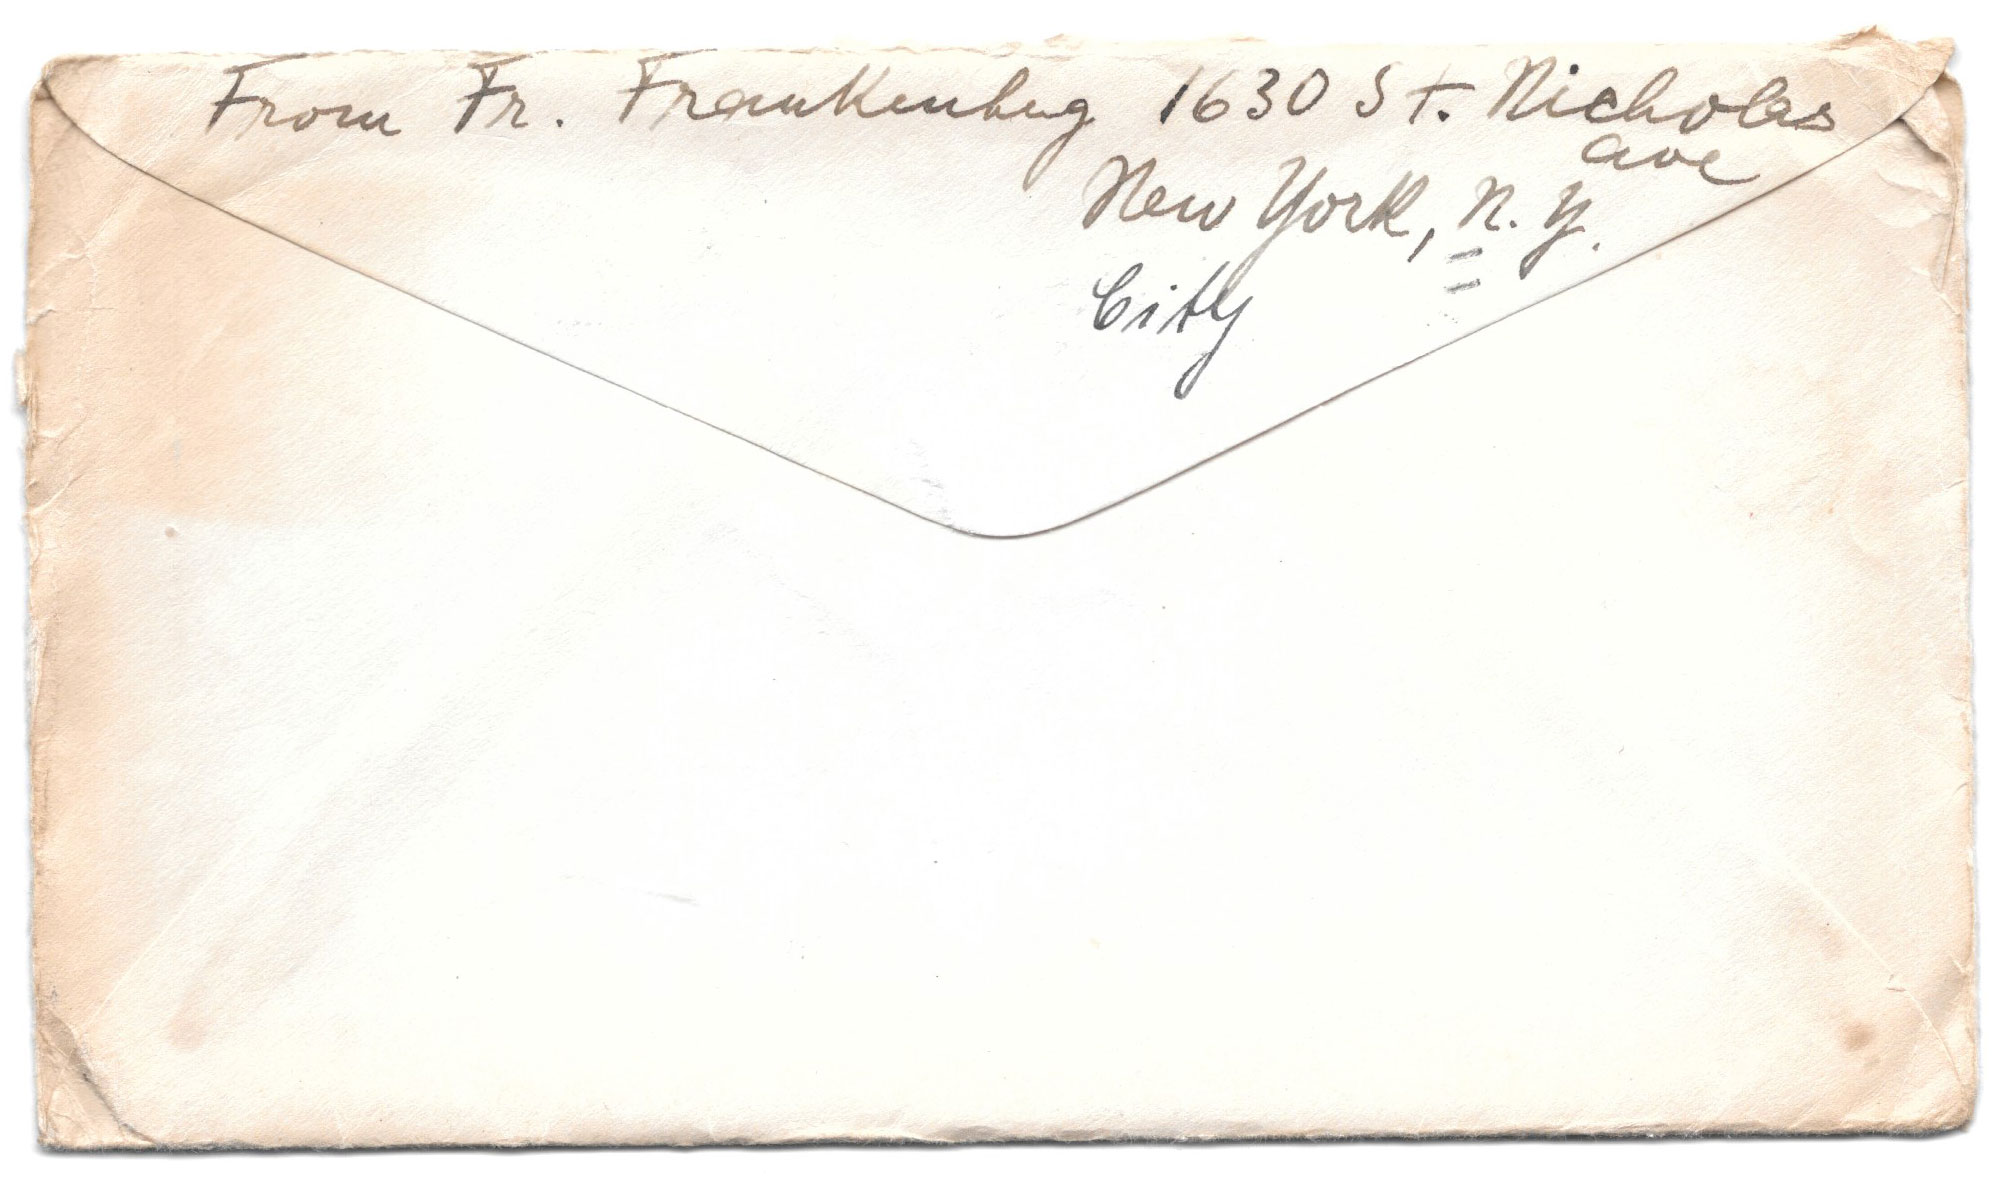 From Fr. Frankenberg 1630 St. Nicholas
ave
New York, N.Y.
City